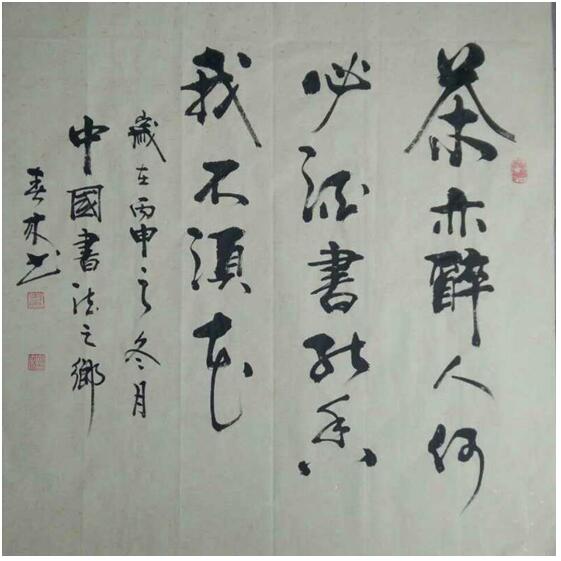 茶亦醉人何
必酒書能香
我不須花
歲在丙申之冬月
中國書法之鄉
春木书